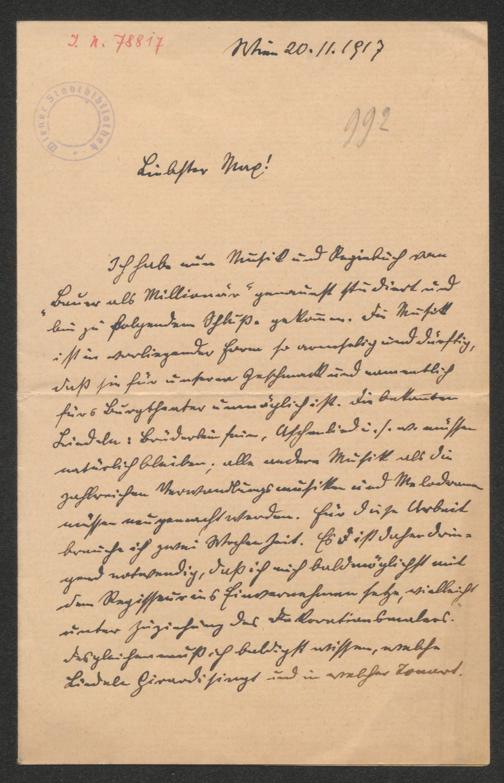 I. N. 78817
Wien 20.11.1917
Wiener Stadtbibliothek
992
Liebster Max!
Ich habe nun Musik und Regiebuch von
„Bauer als Millionär“ genauest studiert und
bin zu folgendem Schluß gekommen. Die Musik
ist in vorliegender Form so armselig und dürftig,
daß sie für unseren Geschmack und namentlich
fürs Burgtheater unmöglich ist. Die bekannten
Liedeln: Brüderlein fein, Aschenlied u.s.w. müssen
natürlich bleiben; alle andere Musik als die
zahlreichen Verwandlungsmusiken und Melodramen
müssen neu gemacht werden. Für diese Arbeit
brauche ich zwei Wochen Zeit. Es ist daher drin-
gend notwendig, daß ich mich baldmöglichst mit
dem Regisseur ins Einvernehmen setze, vielleicht
unter Zuziehung des Dekorationsmalers.
Desgleichen muß ich baldigst wissen, welche
Liedeln Girardi singt und in welcher Tonart.